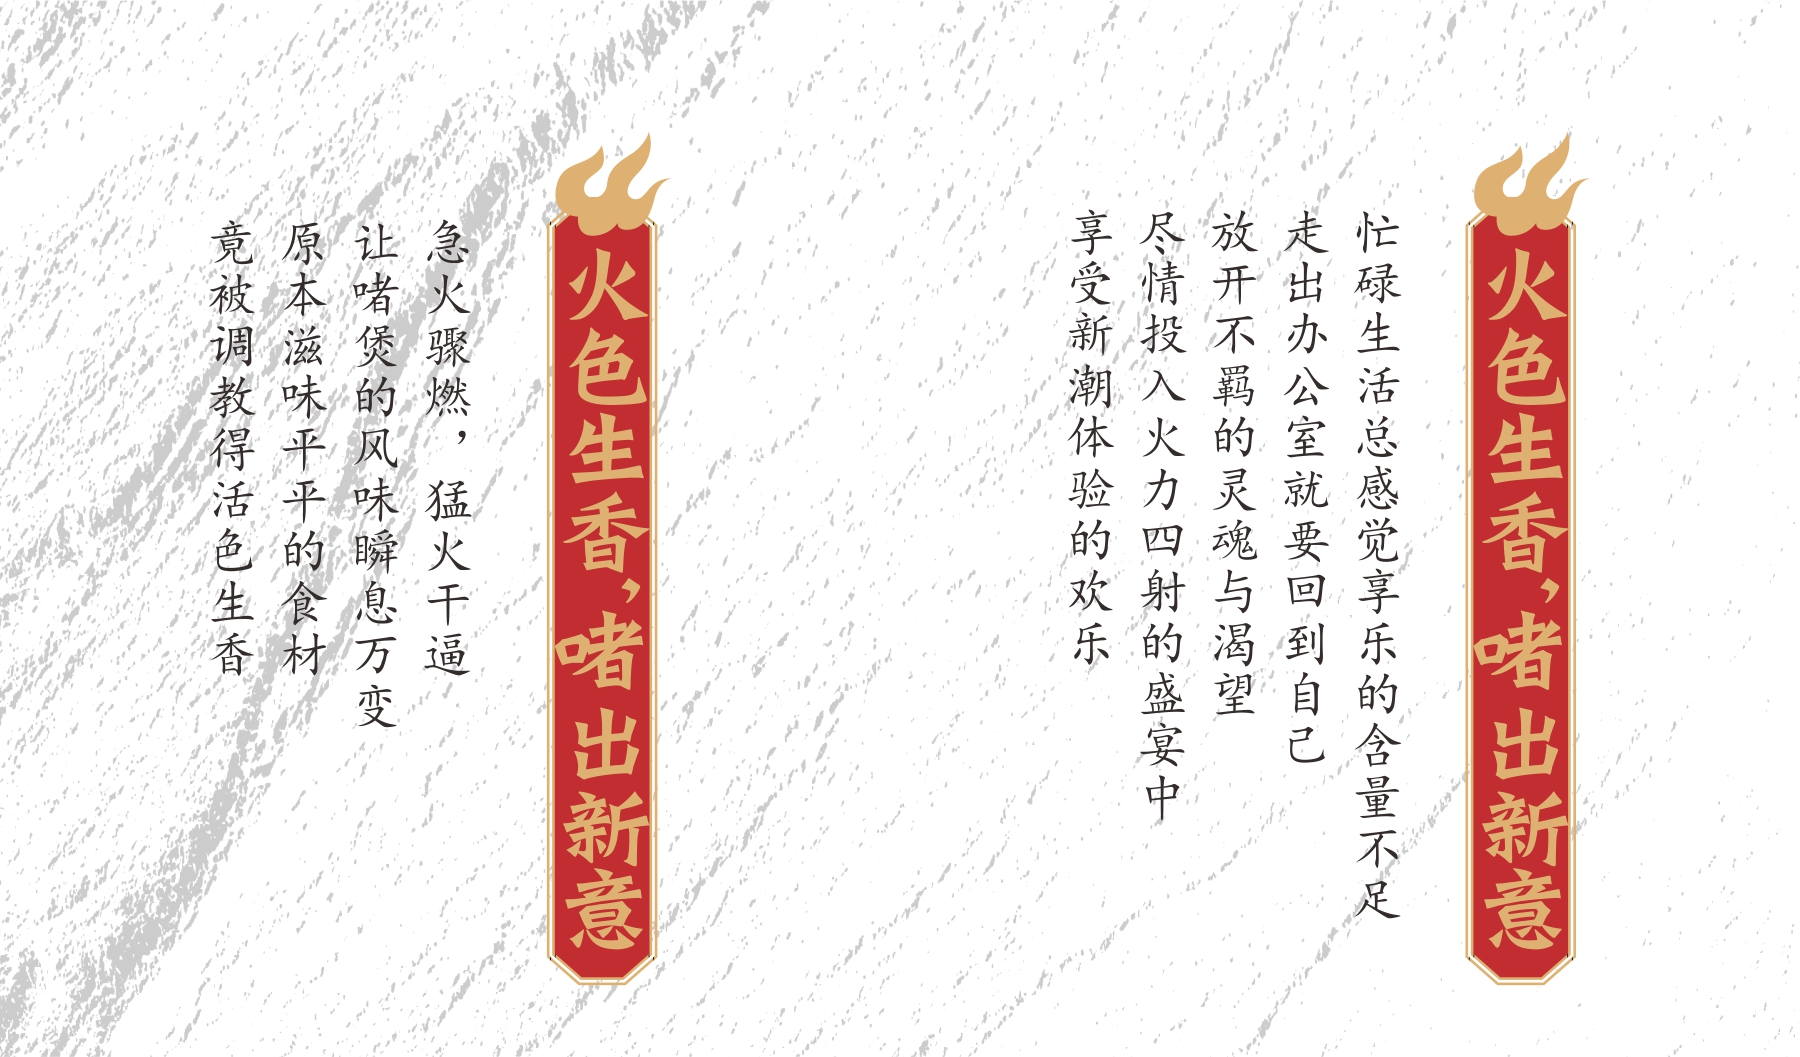 火色生香，啫出新意
忙碌生活总感觉享乐的含量不足
走出办公室就要回到自己
放开不羁的灵魂与渴望
尽情投入火力四射的盛宴中
享受新潮体验的欢乐
火色生香，啫出新意
急火骤燃，猛火干逼
让啫煲的风味瞬息万变
原本滋味平平的食材
竟被调教得活色生香